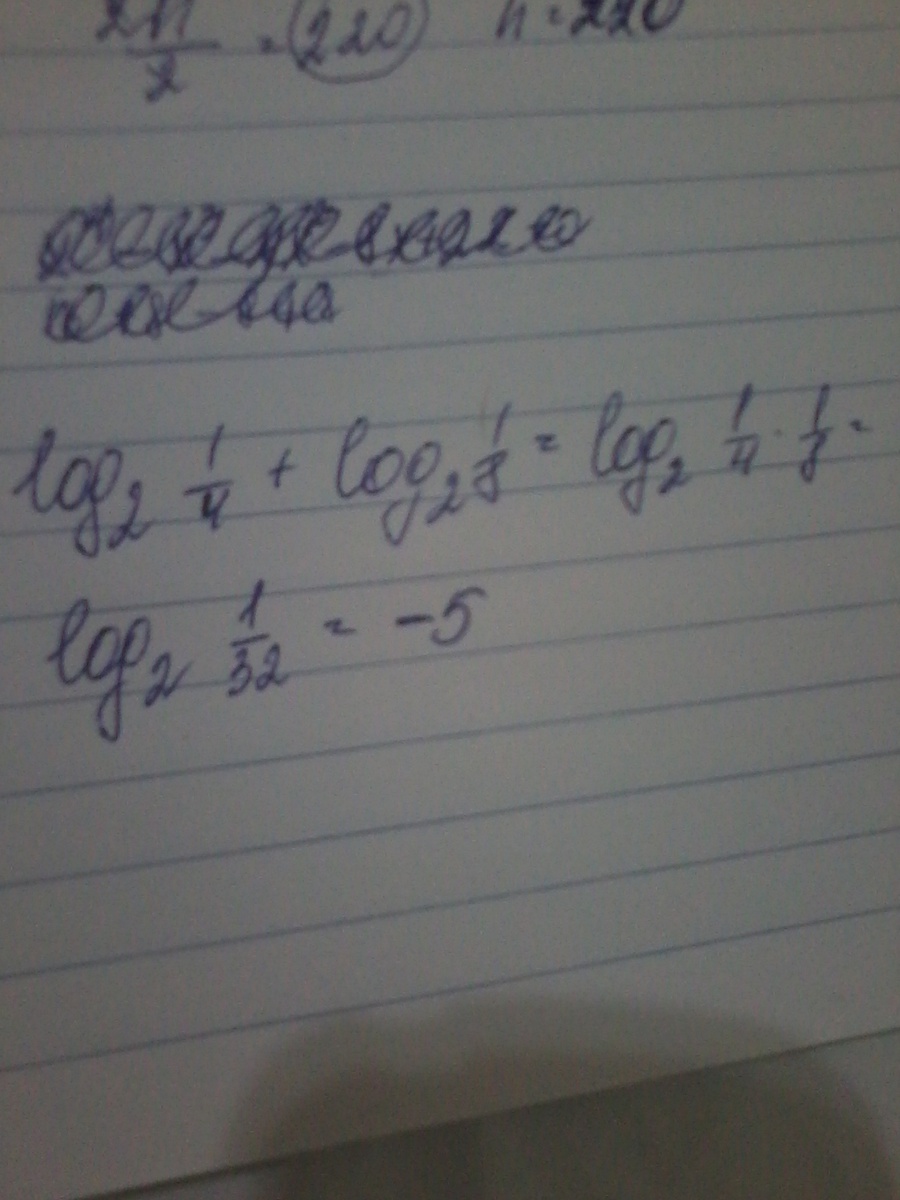 2n/2 = 220 n = 220
log₂ 1/4 + log₂ 1/8 = log₂ 1/4 · 1/8 =
log₂ 1/32 = -5